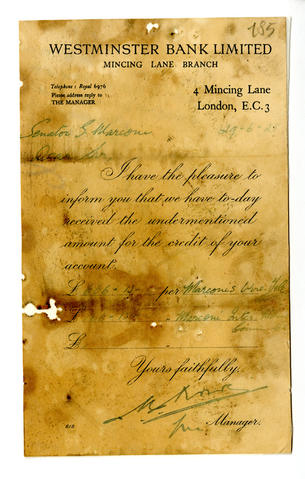 185
WESTMINSTER BANK LIMITED
MINCING LANE BRANCH
Telephone: Royal 6976
Please address reply to
THE MANAGER
4 Mincing Lane
London, E.C. 3
Senator G. Marconi
I have the pleasure to
inform you that we have to-day
received the undermentioned
amount for the credit of your
account.
£ per Marconi's Wire.
£ Marconi Inter
£
Yours faithfully,
Manager.